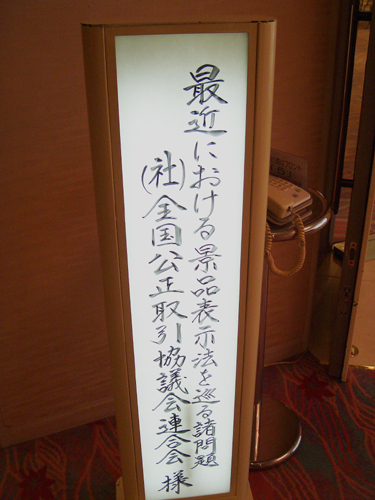 最近における景品表示法を巡る諸問題
(社)全国公正取引協議会連合会 様